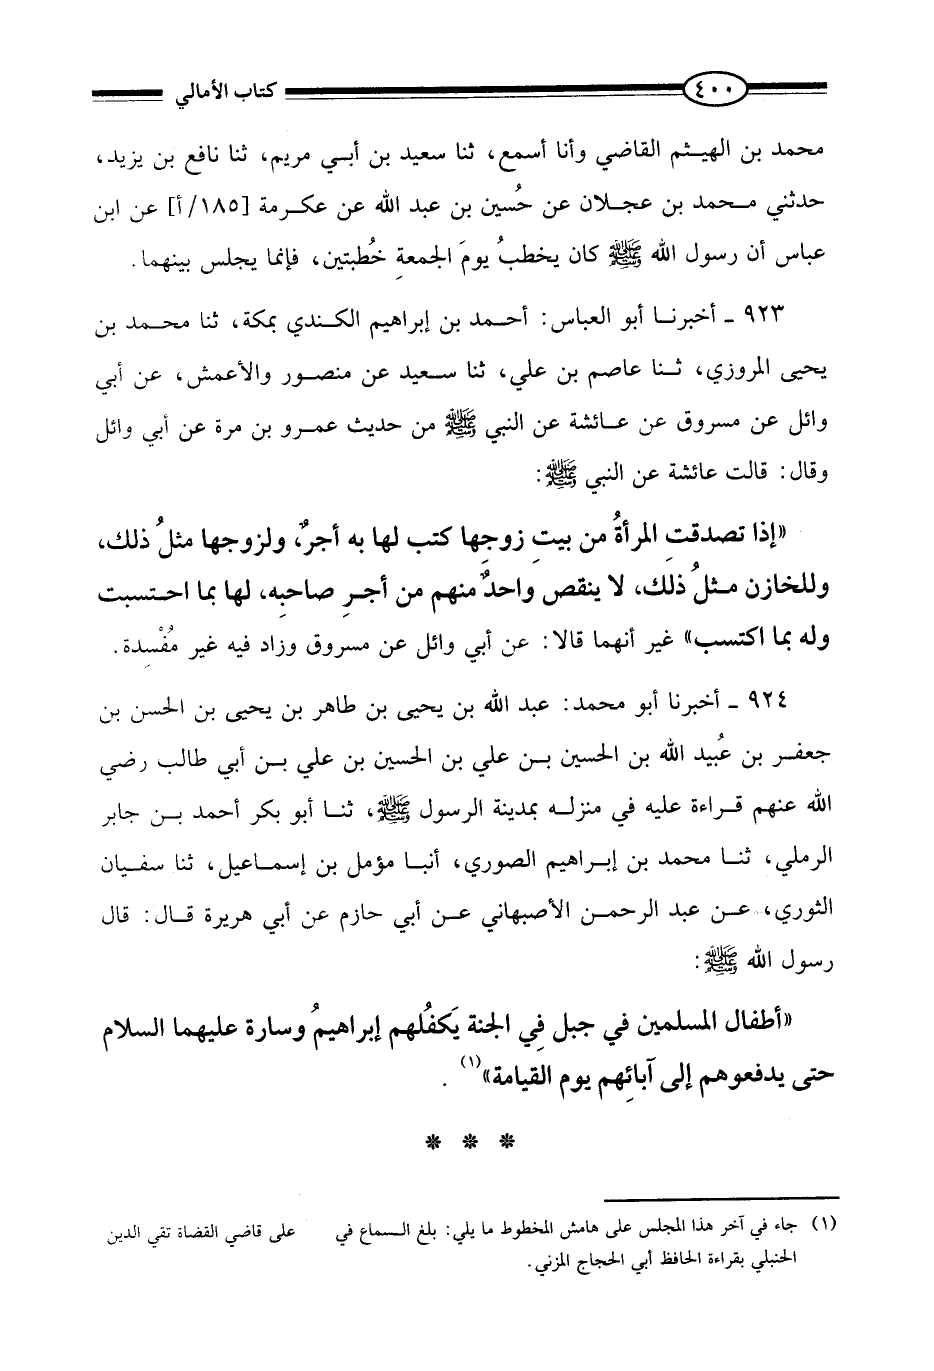 ٤٠٠ كتاب الأمالي
محمد بن الهيثم القاضي وأنا أسمع، ثنا سعيد بن أبي مريم، ثنا نافع بن يزيد،
حدثني محمد بن عجلان عن حُسين بن عبد الله عن عكرمة [١٨٥/أ] عن ابن
عباس أن رسول الله ﷺ كان يخطبُ يومَ الجمعةِ خُطبتين، فإنما يجلس بينهما.
٩٢٣ ـ أخبرنا أبو العباس: أحمد بن إبراهيم الكندي بمكة، ثنا محمد بن
يحيى المروزي، ثنا عاصم بن علي، ثنا سعيد عن منصور والأعمش، عن أبي
وائل عن مسروق عن عائشة عن النبي ﷺ من حديث عمرو بن مرة عن أبي وائل
وقال: قالت عائشة عن النبي ﷺ:
«إذا تصدقتِ المرأةُ من بيتِ زوجِها كتب لها به أجرٌ، ولزوجها مثلُ ذلك،
وللخازن مثلُ ذلك، لا ينقص واحدٌ منهم من أجرِ صاحبِه، لها بما احتسبت
وله بما اكتسب» غير أنهما قالا: عن أبي وائل عن مسروق وزاد فيه غير مُفْسِدة.
٩٢٤ ـ أخبرنا أبو محمد: عبد الله بن يحيى بن طاهر بن يحيى بن الحسن بن
جعفر بن عُبيد الله بن الحسين بن علي بن الحسين بن علي بن أبي طالب رضي
الله عنهم قراءة عليه في منزله بمدينة الرسول ﷺ، ثنا أبو بكر أحمد بن جابر
الرملي، ثنا محمد بن إبراهيم الصوري، أنبا مؤمل بن إسماعيل، ثنا سفيان
الثوري، عن عبد الرحمن الأصبهاني عن أبي حازم عن أبي هريرة قال: قال
رسول الله ﷺ:
«أطفال المسلمين في جبل فِي الجنة يَكفُلُهم إبراهيمُ وسارة عليهما السلام
حتى يدفعوهم إلى آبائِهم يوم القيامة»(١).
* * *
(١) جاء في آخر هذا المجلس على هامش المخطوط ما يلي: بلغ السماع في على قاضي القضاة تقي الدين
الحنبلي بقراءة الحافظ أبي الحجاج المزني.